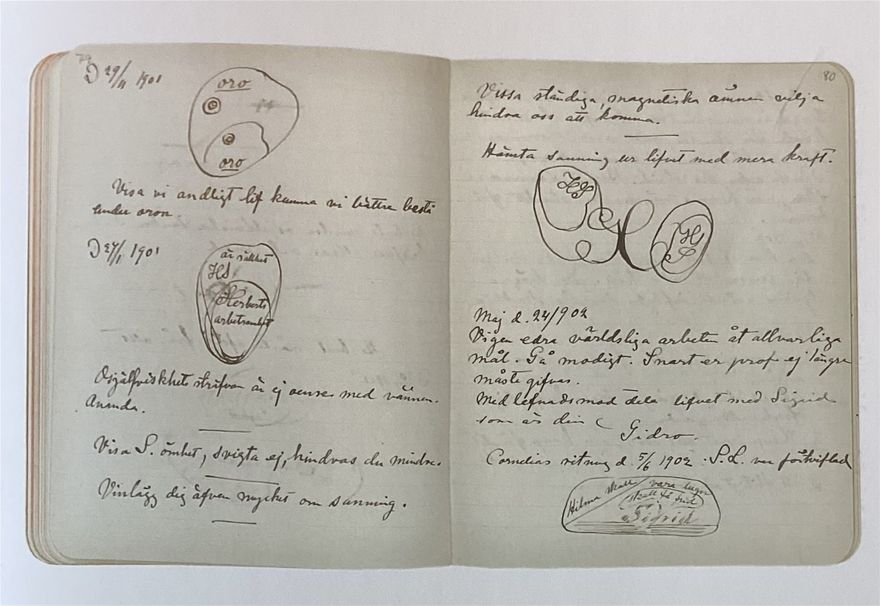 79
D 29/11 1901
oro
oro
Visa vi andligt lif kunna vi bättre bestå
under oron.
D 27/1 1901
är säkhet
HS
Herberts
arbetsamhet
Osjälfviskhets strifvan är ej oense med vännen
Ananda.
Visa S. ömhet, svigta ej, hindras du mindre.
Vinlägg dig äfven mycket om sanning.
80
Vissa ständiga, magnetiska ämnen vilja
hindra oss att komma.
Hämta sanning ur lifvet med mera kraft.
HS
H
HS
Maj d. 24/902
Vigen edra världsliga arbeten åt allvarliga
mål. Gå modigt. Snart er prof ej längre
måste gifvas.
Med lefnadsmod dela lifvet med Sigrid
som är din
Gidro.
Cornelias ritning d. 5/6 1902. S.L. var förtviflad
Hilma skall vara lugn
skall få frid
Sigrid